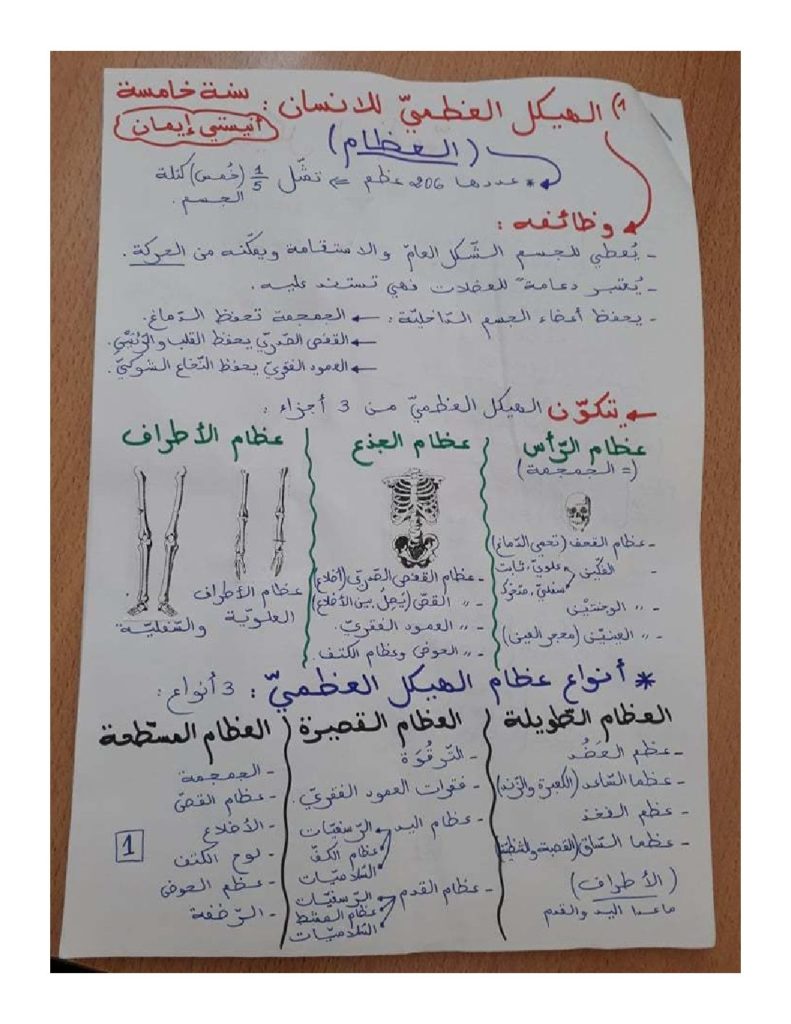 1) الهيكل العظميّ للانسان :
سنة خامسة
أنيستي إيمان
(العظام)
* عددها 206 عظم ⇐ تمثّل 1/5 (خُمس) كتلة
الجسم.
وظائفه :
- يُعطي للجسم الشّكل العامّ والاستقامة ويمكّنه من الحركة.
- يُعتبر دعامة للعضلات فهي تستند عليه.
- يحفظ أعضاء الجسم الدّاخليّة : ← الجمجمة تحفظ الدّماغ.
← القفص الصّدريّ يحفظ القلب والرّئتين.
← العمود الفقريّ يحفظ النّخاع الشوكيّ.
← يتكوّن الهيكل العظميّ من 3 أجزاء :
عظام الرّأس
(= الجمجمة)
- عظام القحف (تحمي الدّماغ)
- الفكّين علويّ، ثابت
سفليّ، متحرّك
- " الوجنتين
- " العينين (محجر العين)
عظام الجذع
- عظام القفص الصّدريّ (أضلاع)
- " القصّ (يَصِلُ بين الأضلاع)
- " العمود الفقريّ.
- " الحوض وعظام الكتف.
عظام الأطراف
عظام الأطراف
العلويّة
والسّفليّة
* أنواع عظام الهيكل العظميّ : 3 أنواع :
العظام الطّويلة
- عظم العَضُد
- عظما السّاعد (الكعبرة والزّند)
- عظم الفخذ
- عظما السّاق (القصبة والشظيّة)
(الأطراف)
ماعدا اليد والقدم
العظام القصيرة
- التّرقُوَة
- فقرات العمود الفقريّ.
- عظام اليد الرّسغيّات
عظام الكفّ
السّلاميّات
- عظام القدم الرّسغيّات
عظام المشط
السّلاميّات
العظام المسطّحة
- الجمجمة
- عظام القصّ
- الأضلاع
- لوح الكتف
- عظم الحوض
- الرّضفة
1